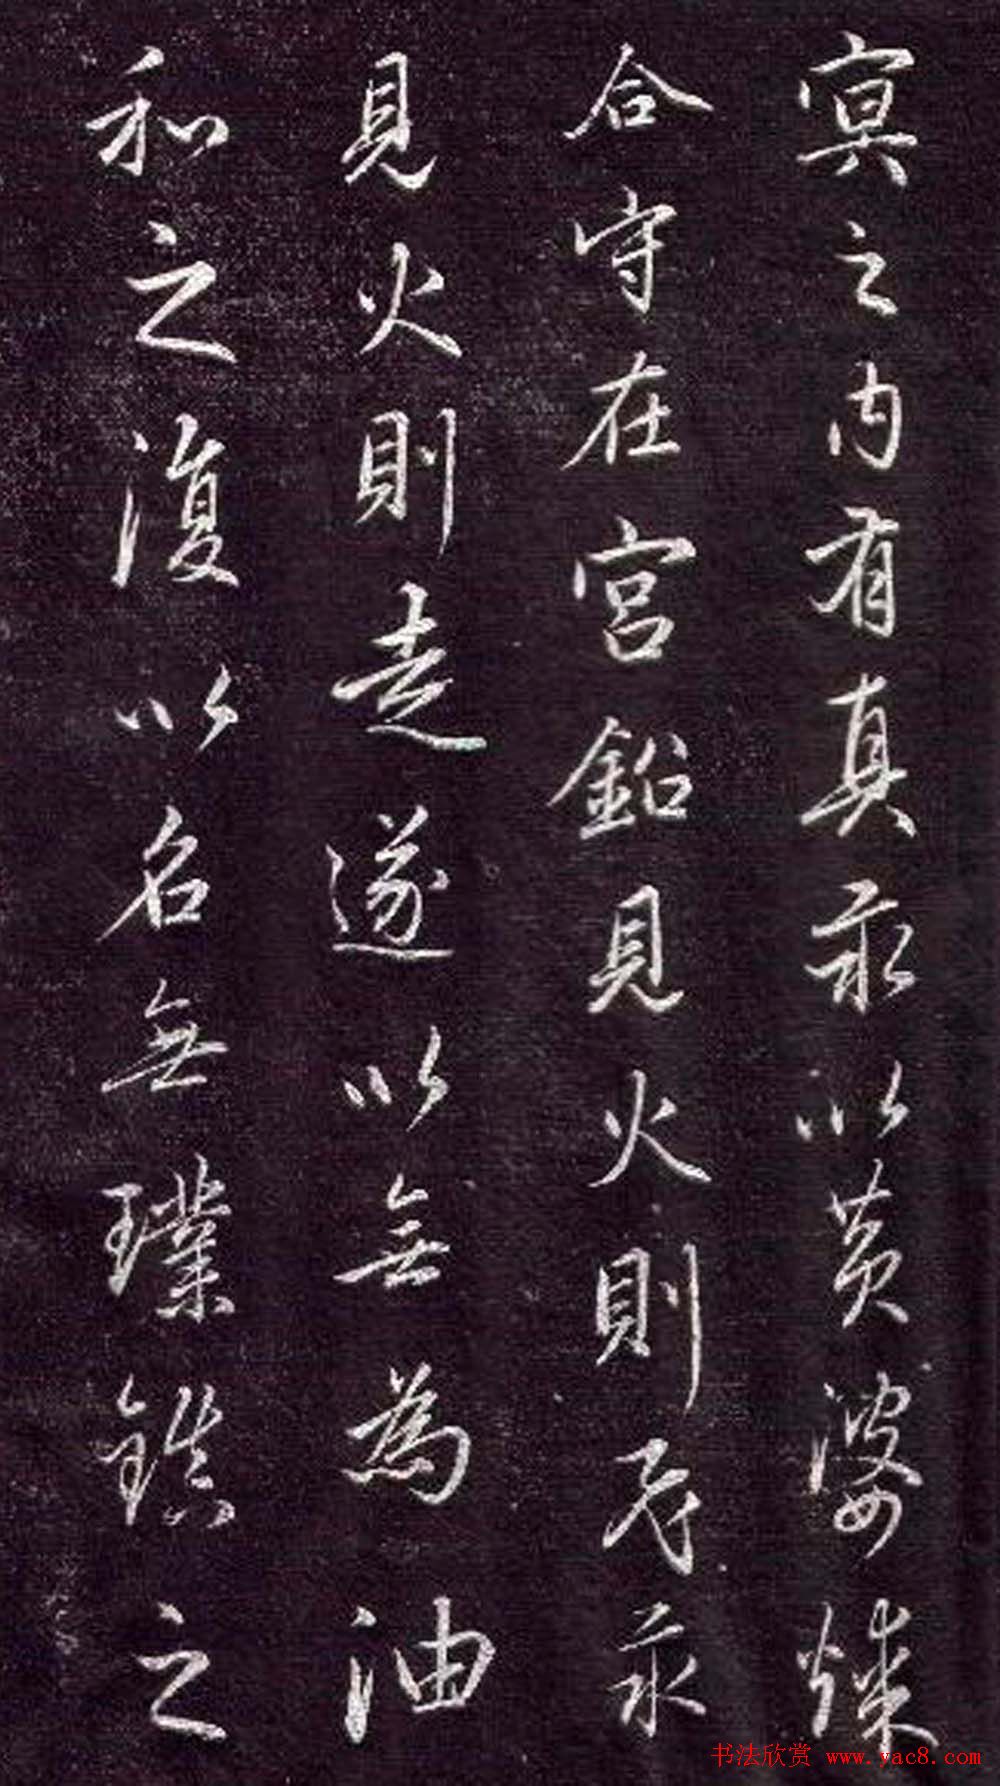 冥之内有真汞以黄婆煉
合守在宫鉛見火則飛汞
見火則走遂以無為油
和之復以名無璞鎮之
书法欣赏 www.yac8.com